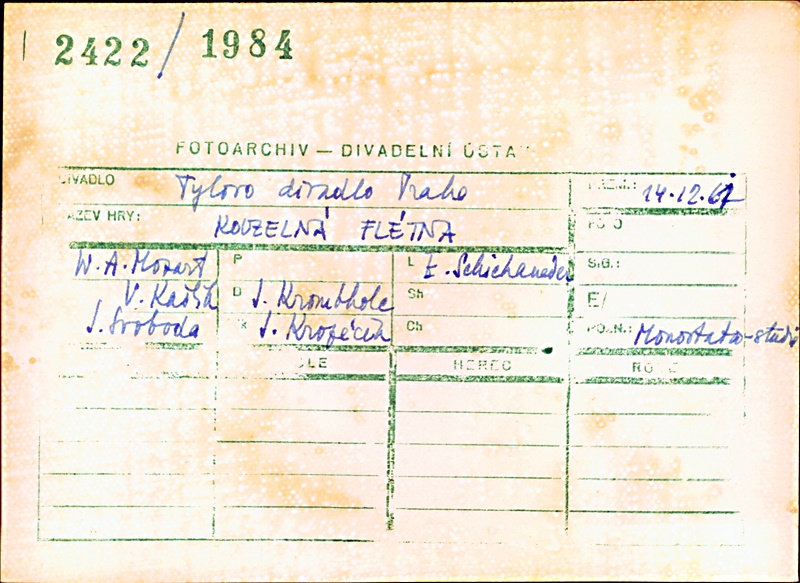 2422/1984
FOTOARCHIV — DIVADELNÍ ÚSTA
DIVADLO Tylovo divadlo Praha PREM.: 14.12.67
NÁZEV HRY: KOUZELNÁ FLÉTNA FOTO
W. A. Mozart P L E. Schichaneder SIG.:
V. Kašlík D J. Krombholc Sh E/
J. Svoboda K J. Kropáček Ch POZN.: Monostatos-studie
ROLE HEREC ROLE